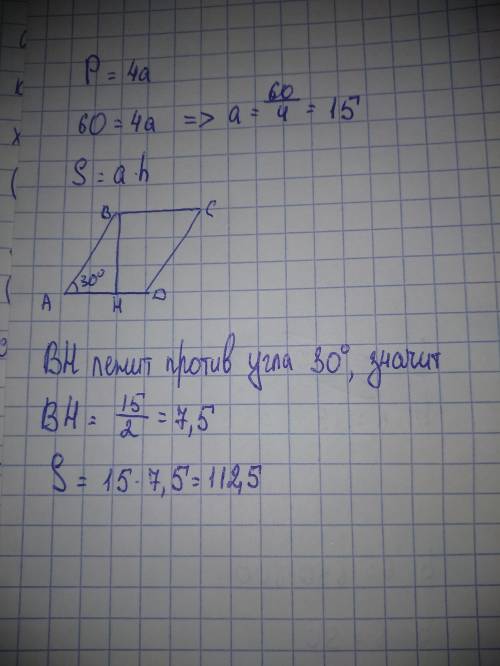 P = 4a
60 = 4a => a = 60/4 = 15
S = a · h
B C
30°
A H D
BH лежит против угла 30°, значит
BH = 15/2 = 7,5
S = 15 · 7,5 = 112,5